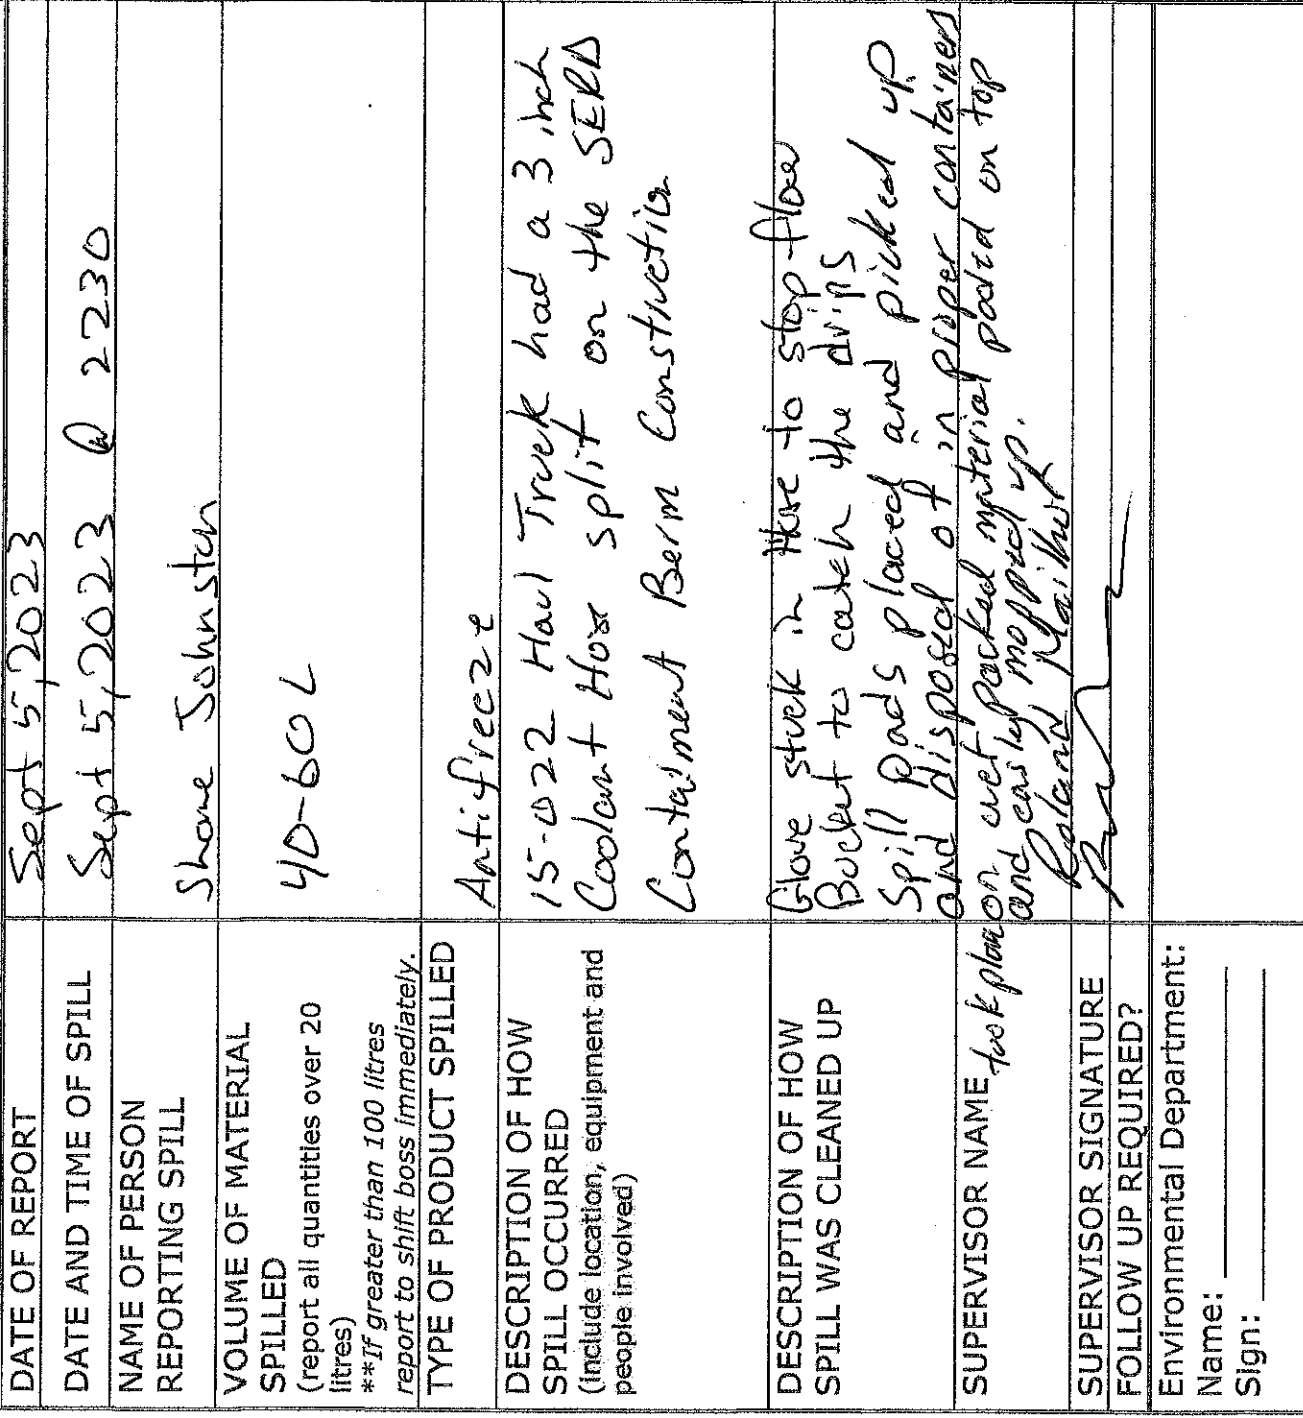 DATE OF REPORT
Sept 5, 2023
DATE AND TIME OF SPILL
Sept 5, 2023 @ 2230
NAME OF PERSON
REPORTING SPILL
Shane Johnston
VOLUME OF MATERIAL
SPILLED
(report all quantities over 20
litres)
**If greater than 100 litres
report to shift boss immediately.
40-60 L
TYPE OF PRODUCT SPILLED
Antifreeze
DESCRIPTION OF HOW
SPILL OCCURRED
(Include location, equipment and
people involved)
15-022 Haul Truck had a 3 inch
Coolant Hose split on the SERD
Containment Berm Construction
DESCRIPTION OF HOW
SPILL WAS CLEANED UP
Glove stuck in Hose to stop flow
Bucket to catch the drips
Spill pads placed and picked up
and disposed of in proper containers
took place on wet packed material pooled on top
and easily mopped up.
SUPERVISOR NAME
Roland
SUPERVISOR SIGNATURE
FOLLOW UP REQUIRED?
Environmental Department:
Name:
Sign: